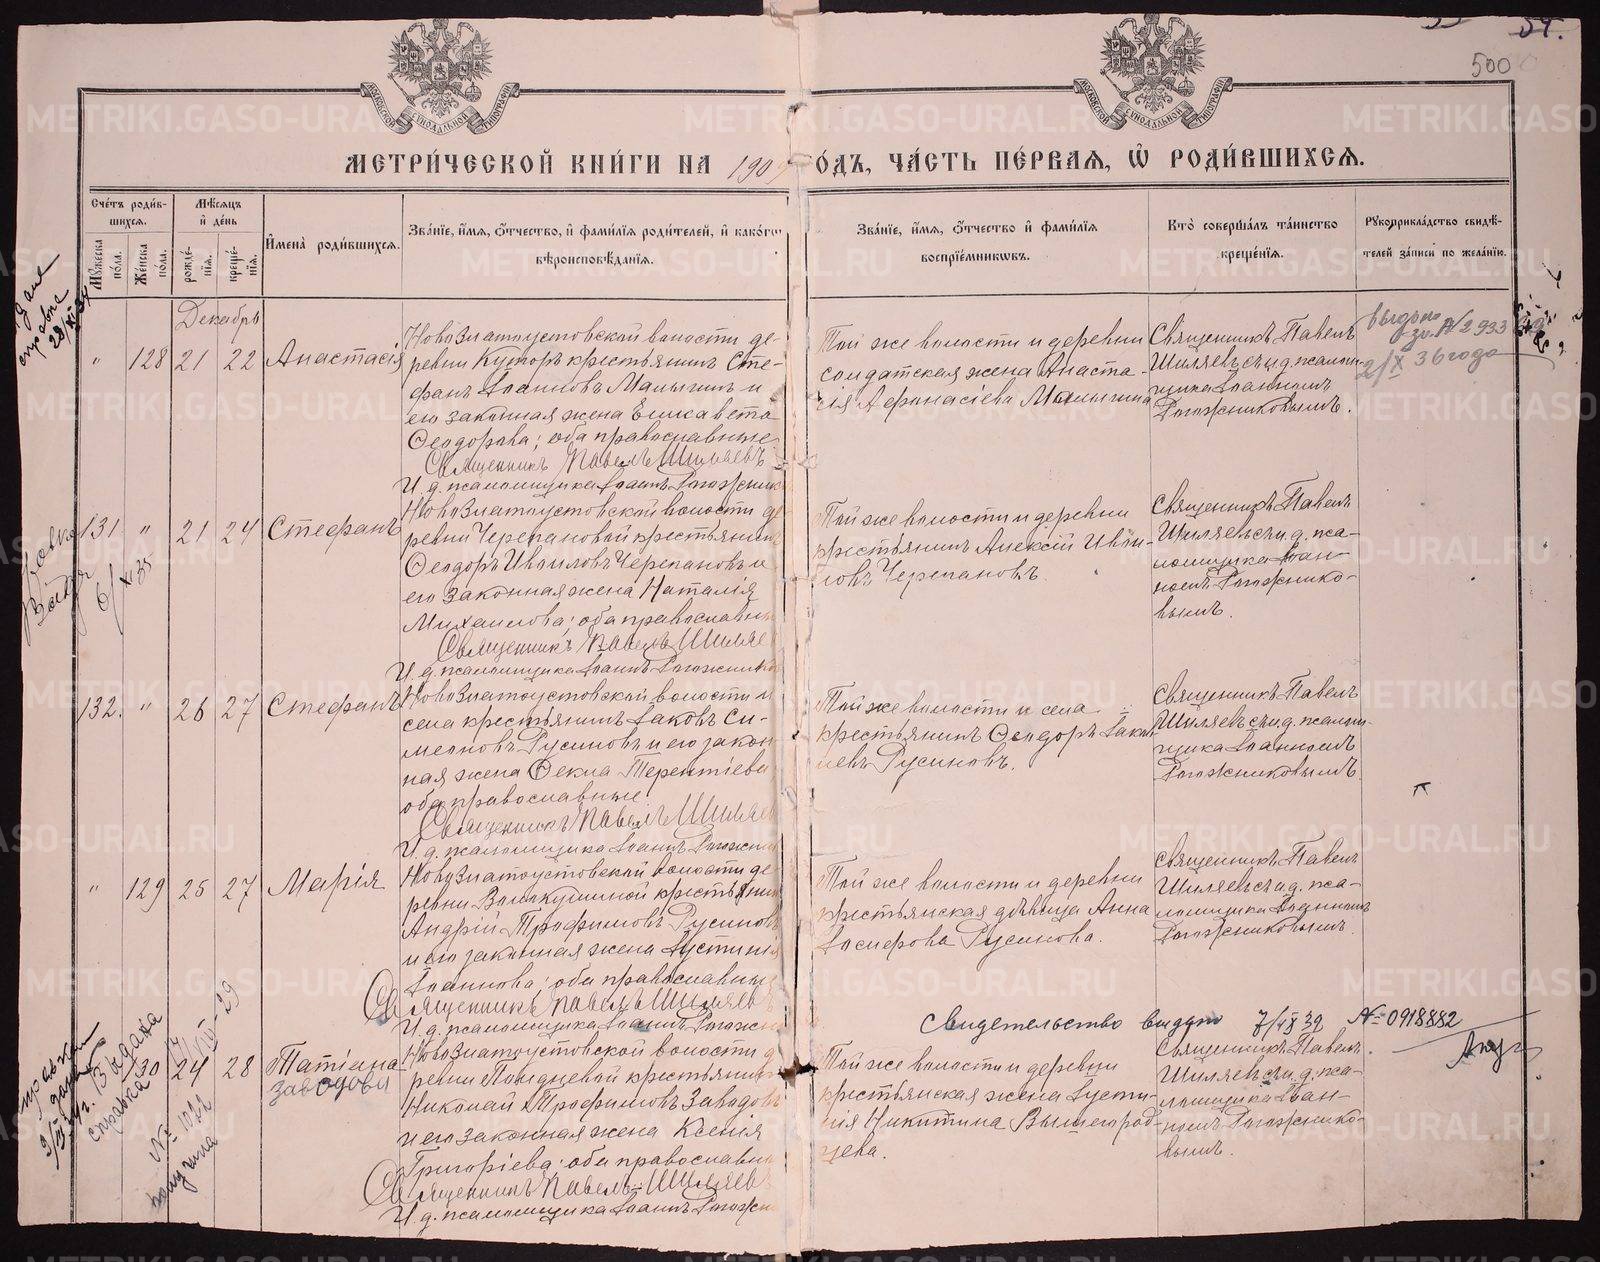 54.
500
МОСКОВСКОЙ СѴНОДАЛЬНОЙ ТИПОГРАФІИ
МОСКОВСКОЙ СѴНОДАЛЬНОЙ ТИПОГРАФІИ
МЕТРИ́ЧЕСКОЙ КНИ́ГИ НА 190 ОДЪ, ЧА́СТЬ ПЕ́РВАЯ, Ѽ РОДИ́ВШИХСЯ.
Сче́тъ роди́в-
шихся.
Му́жеска по́ла.
Же́нска по́ла.
Мѣ́сяцъ
и҆ де́нь
рожде́-
нїя.
креще́-
нїя.
И҆мена̀ роди́вшихся.
Зва́нїе, и҆́мя, ѻ҆́тчество, и҆ фами́лїя роди́телей, и҆ како́гѡ
вѣроисповѣ́данїя.
Зва́нїе, и҆́мя, ѻ҆́тчество и҆ фами́лїя
воспрїе́мникѡвъ.
Кто̀ соверша́лъ та́инство
креще́нїя.
Рꙋкоприкла́дство свидѣ́-
телей за́писи по жела́нїю.
Декабрь
" 128 21 22 Анастасія
Ново Златоустовской волости де-
ревни Куторъ крестьянинъ Сте-
фанъ Іоанновъ Малыгинъ и
его законная жена Елисавета
Ѳеодорова; оба православные
Священникъ Павелъ Шиляевъ
И. д. псаломщика Іоаннъ Рогожник
Той же волости и деревни
солдатская жена Анаста-
сія Аѳанасіева Малыгина
Священникъ Павелъ
Шиляевъ съ и. д. псалом-
щика Іоанномъ
Рогожниковымъ.
выдано
св. №2933
2/X 36 года
131 " 21 24 Стефанъ
Ново Златоустовской волости де
ревни Черепановой крестьянинъ
Ѳеодоръ Ивановъ Черепановъ и
его законная жена Наталія
Михаилова; оба православны
Священникъ Павелъ Шиляе
И. д. псаломщика Іоаннъ Рогожник
Той же волости и деревни
крестьянинъ Алексій Иван-
новъ Черепановъ.
Священникъ Павелъ
Шиляевъ съ и. д. пса-
ломщика Іоан-
номъ Рогожнико-
вымъ.
6/XI 35
132. " 26 27 Стефанъ
Ново Златоустовской волости и
села крестьянинъ Іаковъ Си-
меоновъ Русиновъ и его закон
ная жена Ѳекла Терентіева
оба православные.
Священникъ Павелъ Шиляе
И. д. псаломщика Іоаннъ Рогожни
Той же волости и села
крестьянинъ Ѳеодоръ Іаков
левъ Русиновъ.
Священникъ Павелъ
Шиляевъ съ и. д. псалом-
щика Іоанномъ
Рогожниковымъ.
" 129 25 27 Марія
Ново Златоустовской волости де
ревни Волокушиной крестьянин
Андрей Трофимовъ Русинов
и его законная жена Іустинія
Іоаннова; оба православны
Священникъ Павелъ Шиляев
И. д. псаломщика Іоаннъ Рогожни
Той же волости и деревни
крестьянская дѣвица Анна
Іосифова Русинова.
Священникъ Павелъ
Шиляевъ съ и. д. пса-
ломщика Іоанномъ
Рогожниковымъ.
Свидетельство выдано 7/IX 39 №0918882
130 24 28 Татіана
Заводова
Ново Златоустовской волости д
ревни Полуднёвой крестьянинъ
Николай Трофимовъ Заводов
и его законная жена Ксенія
Григоріева; оба православны
Священникъ Павелъ Шиляев
И. д. псаломщика Іоаннъ Рогожн
Той же волости и деревни
крестьянская жена Іусти-
нія Никитина Вышегород-
цева.
Священникъ Павелъ
Шиляевъ съ и. д. пса-
ломщика Іоан-
номъ Рогожнико-
вымъ.
справка
28/XI 34
Выдана
справка
№ 1022
METRIKI.GASO-URAL.RU